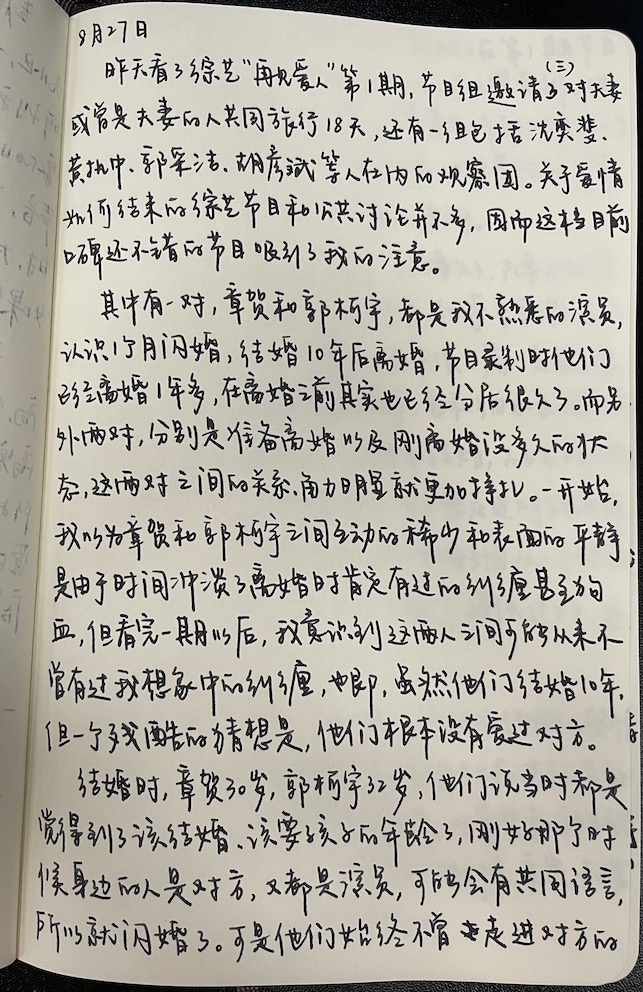 8月27日
昨天看了综艺“再见爱人”第1期,节目组邀请了(三)对夫妻
或曾是夫妻的人共同旅行18天,还有一组包括沈奕斐、
黄执中、郭采洁、胡彦斌等人在内的观察团。关于爱情
如何结束的综艺节目和公共讨论并不多,因而这档目前
口碑还不错的节目吸引了我的注意。
其中有一对,章贺和郭柯宇,都是我不熟悉的演员,
认识1个月闪婚,结婚10年后离婚,节目录制时他们
已经离婚1年多,在离婚之前其实也已经分居很久了。而另
外两对,分别是准备离婚以及刚离婚没多久的状
态,这两对之间的关系、角力明显就更加拉扯。一开始,
我以为章贺和郭柯宇之间互动的稀少和表面的平静
是由于时间冲淡了离婚时肯定有过的纠缠甚至狗
血,但看完一期以后,我意识到这两人之间可能从来不
曾有过我想象中的纠缠,也即,虽然他们结婚10年,
但一个残酷的猜想是,他们根本没有爱过对方。
结婚时,章贺30岁,郭柯宇32岁,他们说当时都是
觉得到了该结婚、该要孩子的年龄了,刚好那个时
候身边的人是对方,又都是演员,可能会有共同语言,
所以就闪婚了。可是他们始终不曾走进对方的